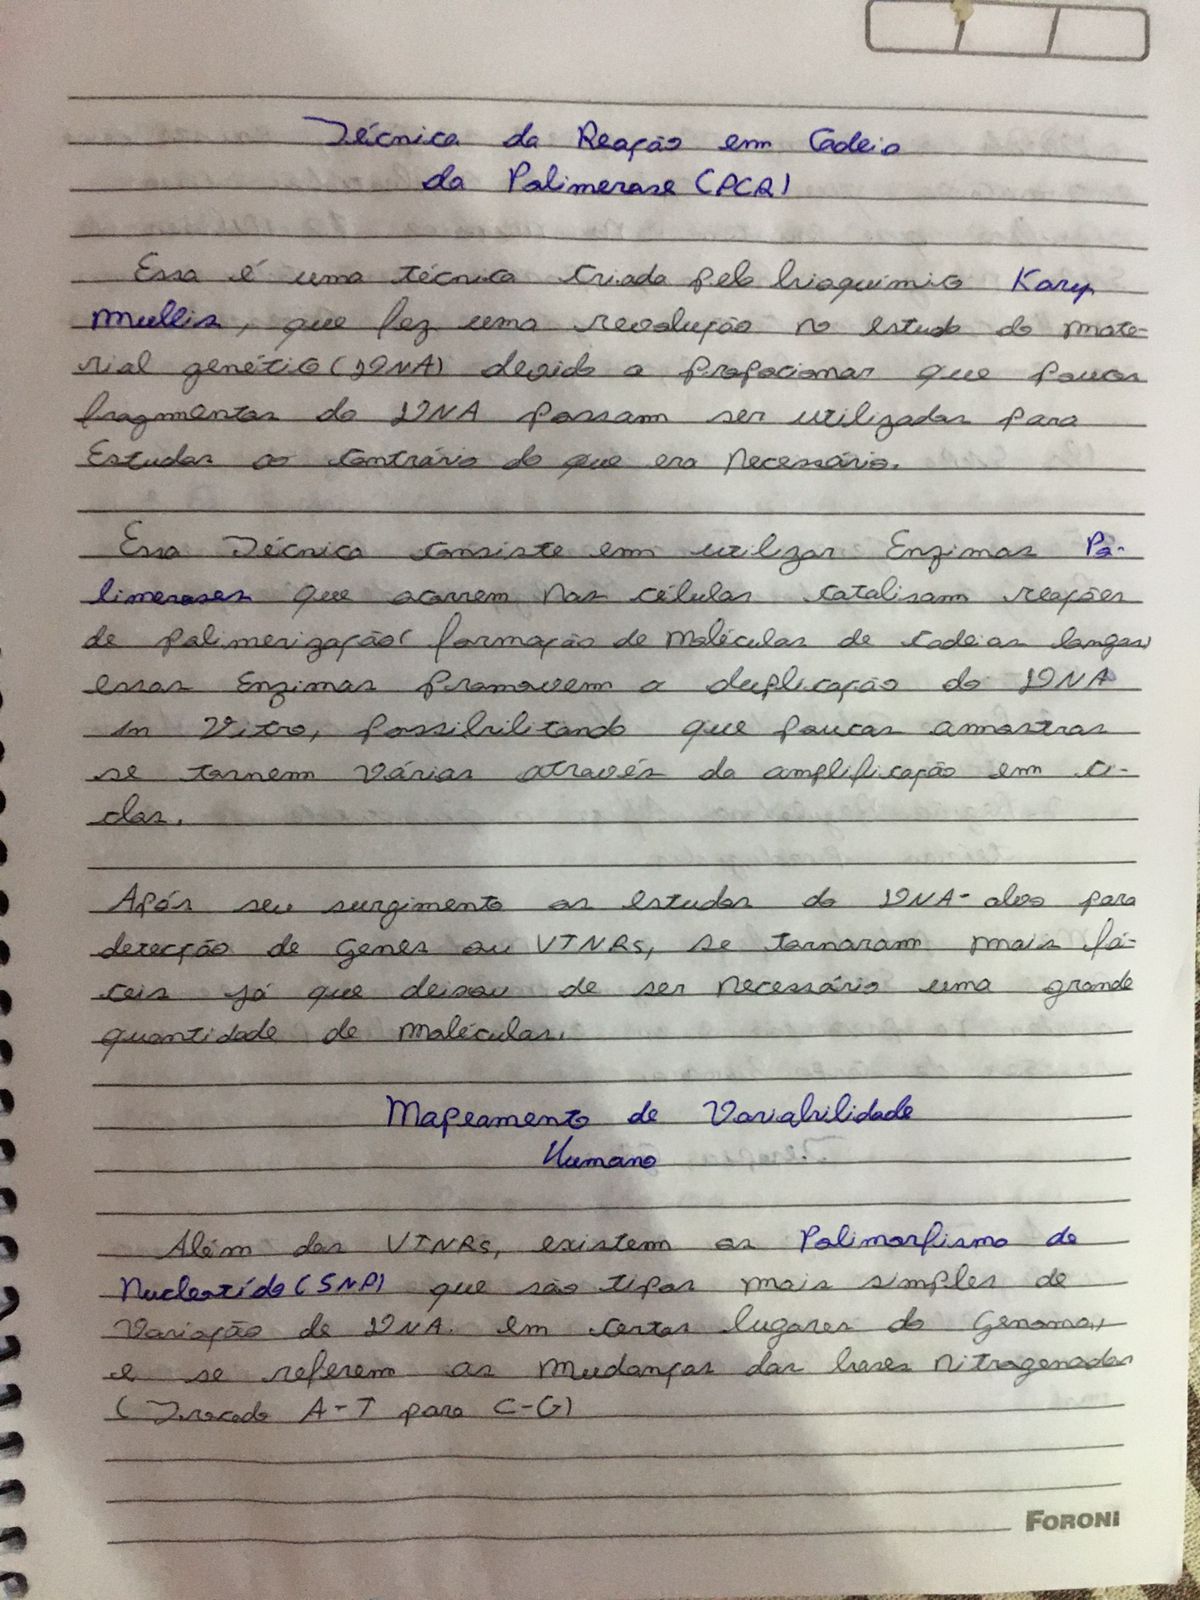 Técnica da Reação em Cadeia
da Polimerase (PCR)
Essa é uma técnica criada pelo bioquímico Kary
Mullis, que fez uma revolução no estudo do mate-
rial genético (DNA) devido a propocionar que poucos
fragmentos do DNA possam ser utilizados para
Estudos ao contrário do que era necessário.
Essa Técnica consiste em utilizar Enzimas Po-
limerases que ocorrem nas células catalisam reações
de polimerização( formação de moléculas de cadeias longas)
essas Enzimas promovem a duplicação do DNA
in Vitro, possibilitando que poucas amostras
se tornem várias através da amplificação em ci-
clos.
Após seu surgimento os estudos do DNA-alvo para
detecção de genes ou VTNRs, se tornaram mais fá-
ceis já que deixou de ser necessário uma grande
quantidade de moléculas.
Mapeamento de Variabilidade
Humano
Além das VTNRs, existem os Polimorfismo de
Nucleotído (SNP) que são tipos mais simples de
Variação de DNA. em certos lugares do Genoma,
e se referem as mudanças das bases nitrogenadas
(Trocado A-T para C-G)
FORONI